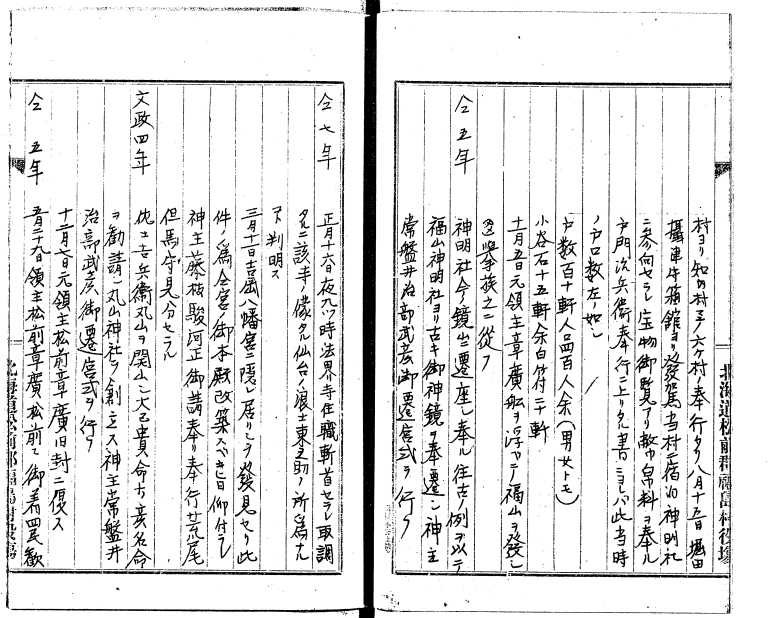 村ヨリ知内村迄ノ六ケ村ノ奉行タリ八月十五日堀田
攝津守箱館ヨリ發駕当村ニ宿泊神明社
ニ参向セラレ宝物御覧アリ敬巾帛料ヲ奉ル
戸門治兵衛奉行ニ上リタル書ニヨレバ此当時
ノ戸口数左ノ如シ
戸数百十軒人口四百人余(男女トモ)
小谷石十五軒余白符二十軒
仝五年 十一月五日元領主章廣船ヲ浮ベテ福山ヲ發シ
挙族之ニ從フ
神明社今ノ鏡山ニ遷座シ奉ル往古ノ例ヲ以テ
福山神明社ヨリ古キ御神鏡ヲ奉遷シ神主
常盤井治部武彦御遷宮式ヲ行フ
北海道松前郡福島村役場
仝七年 正月十六日夜九ツ時法界寺住職斬首セラレ取調
タルニ該寺ノ僕タル仙台ノ浪士東之助ノ所為ナル
コト判明ス
三月十一日吉岡八幡宮ニ隠レ居リシヲ發見セリ此
件ノ為仝宮ノ御本殿改築スベキ旨仰付ラレ
神主藤枝駿河正御請奉リ奉行荒尾
但馬守見分セラル
文政四年 住吉兵衛丸山ヲ開山シ大己貴命ナ亥名命
ヲ勧請シ丸山神社ヲ創立ス神主常盤井
治部武彦御遷宮式ヲ行フ
十二月七日元領主松前章廣旧封ニ復ス
仝五年 五月二十九日領主松前章廣松前ニ御着四民歓
北海道松前郡福島村役場